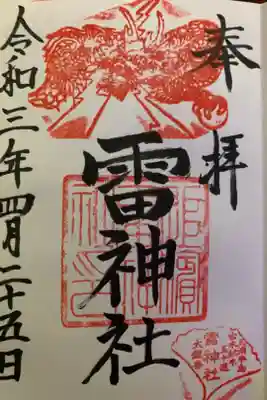 奉拝
雷神社
令和三年四月二十五日
雷神社